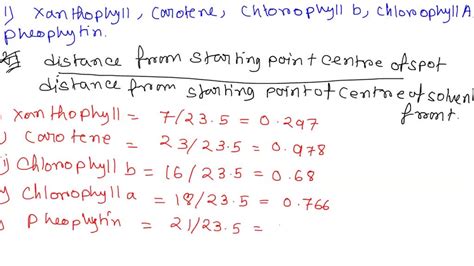 1) Xanthophyll, Carotene, Chlorophyll b, Chlorophyll A,
Pheophytin.
distance from starting point centre of spot
distance from starting point of centre of solvent
front.
Xanthophyll = 7/23.5 = 0.297
) Carotene = 23/23.5 = 0.978
i) Chlorophyll b = 16/23.5 = 0.68
) Chlorophyll a = 18/23.5 = 0.766
) Pheophytin = 21/23.5 =